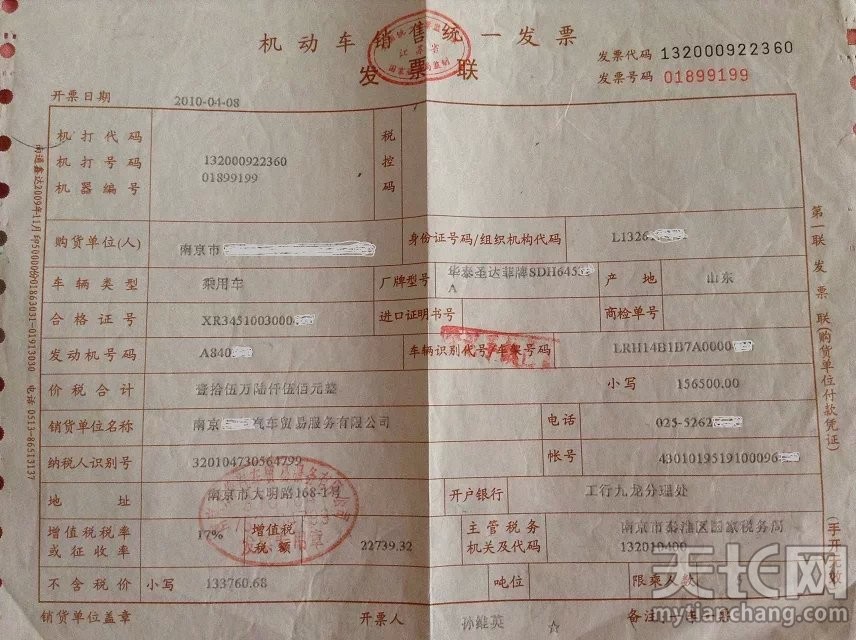 机动车销售统一发票
发票联
发票代码 132000922360
发票号码 01899199
开票日期 2010-04-08
机打代码 132000922360
机打号码 01899199
机器编号
税控码
购货单位(人) 南京市
身份证号码/组织机构代码 L1326
车辆类型 乘用车
厂牌型号 华泰圣达菲牌SDH645
A
产地 山东
合格证号 XR3451003000
进口证明书号
商检单号
发动机号码 A840
车辆识别代号/车架号码 LRH14B1B7A0000
价税合计 壹拾伍万陆仟伍佰元整
小写 156500.00
销货单位名称 南京 汽车贸易服务有限公司
电话 025-5262
纳税人识别号 320104730564799
帐号 4301019519100096
地址 南京市大明路168-1号
开户银行 工行九龙分理处
增值税税率或征收率 17%
增值税税额 22739.32
主管税务机关及代码 南京市秦淮区国家税务局
132010400
不含税价 小写 133760.68
吨位
限乘人数
销货单位盖章
开票人 孙维英
第一联 发票联(购货单位付款凭证)
(手开无效)
天长网
mytianchang.com